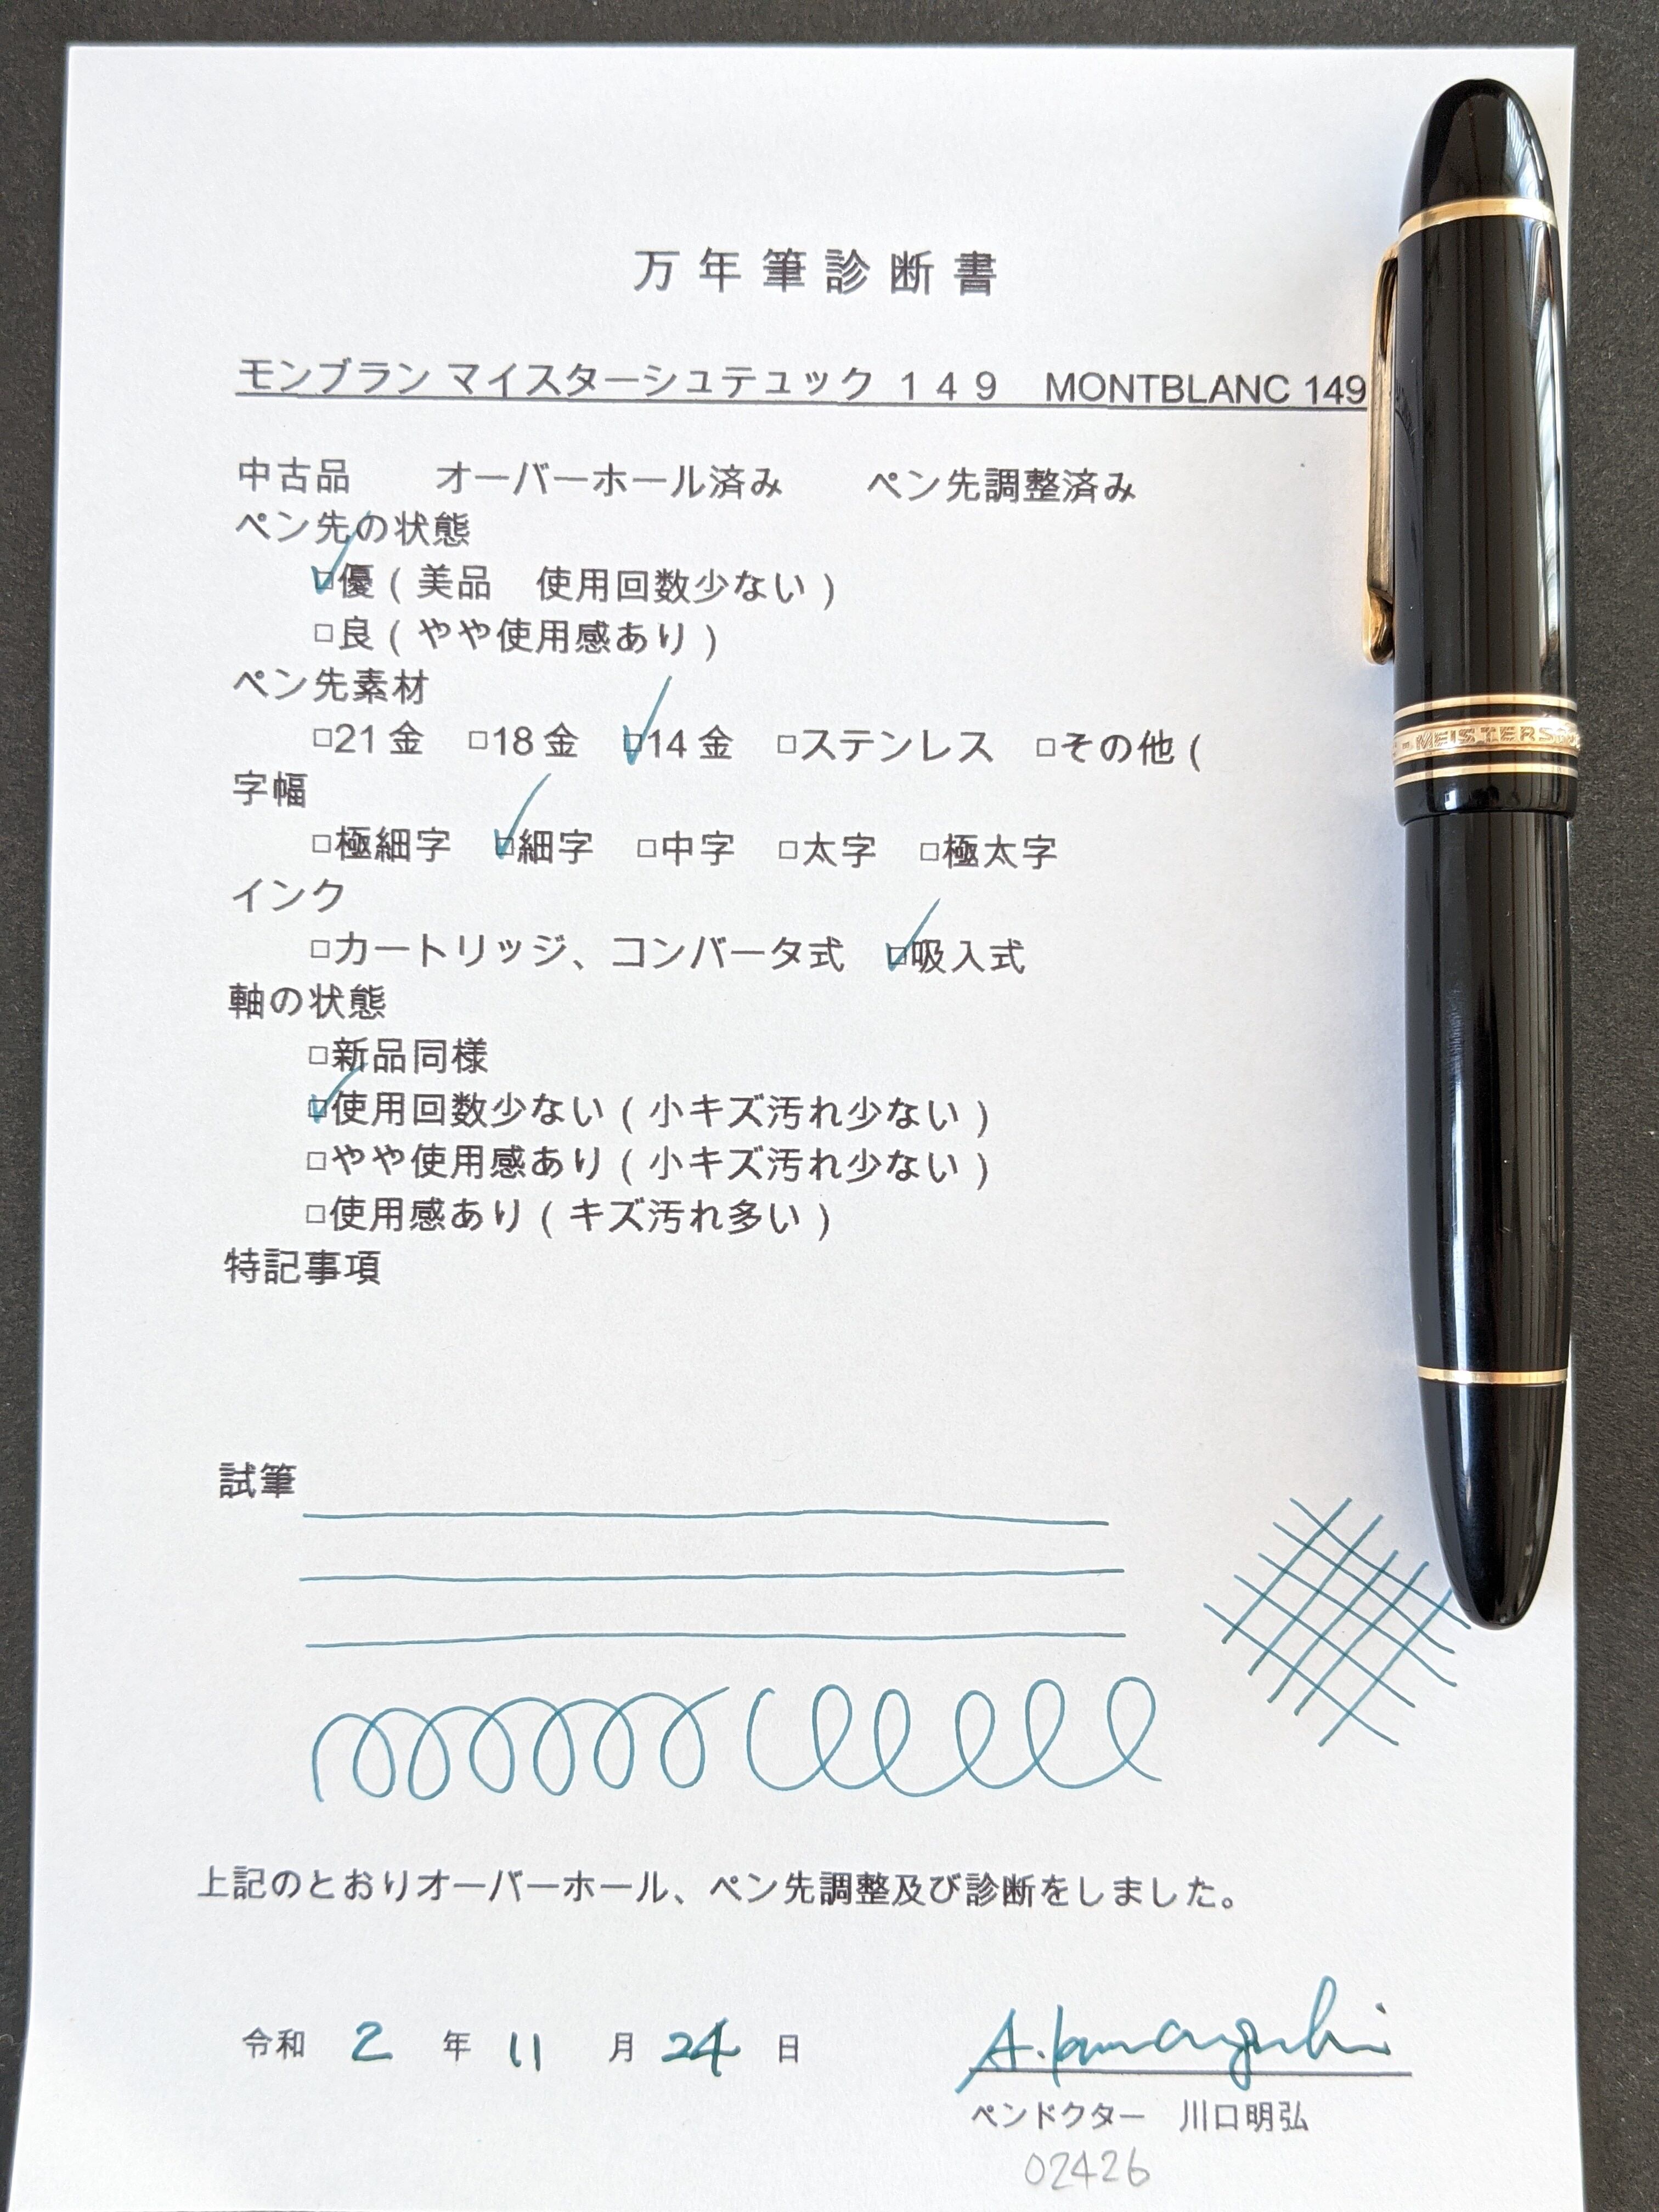 万年筆診断書
モンブラン マイスターシュテュック １４９　MONTBLANC 149
中古品　　オーバーホール済み　　ペン先調整済み
ペン先の状態
☑優（美品　使用回数少ない）
□良（やや使用感あり）
ペン先素材
□21金　□18金　☑14金　□ステンレス　□その他（
字幅
□極細字　☑細字　□中字　□太字　□極太字
インク
□カートリッジ、コンバータ式　☑吸入式
軸の状態
□新品同様
☑使用回数少ない（小キズ汚れ少ない）
□やや使用感あり（小キズ汚れ少ない）
□使用感あり（キズ汚れ多い）
特記事項
試筆
上記のとおりオーバーホール、ペン先調整及び診断をしました。
令和 2 年 11 月 24 日
A. Kawaguchi
ペンドクター　川口明弘
02426
- MEISTERS